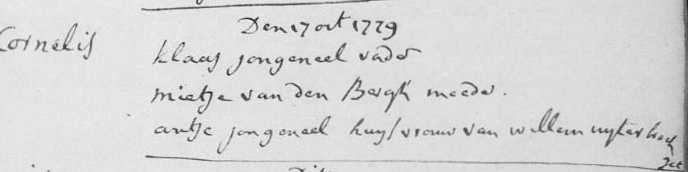 Den 17 oct 1779
Cornelis
klaas jongeneel vader
mietje van den Bergh moeder.
antje jongeneel huysvrouw van willem uyter
get